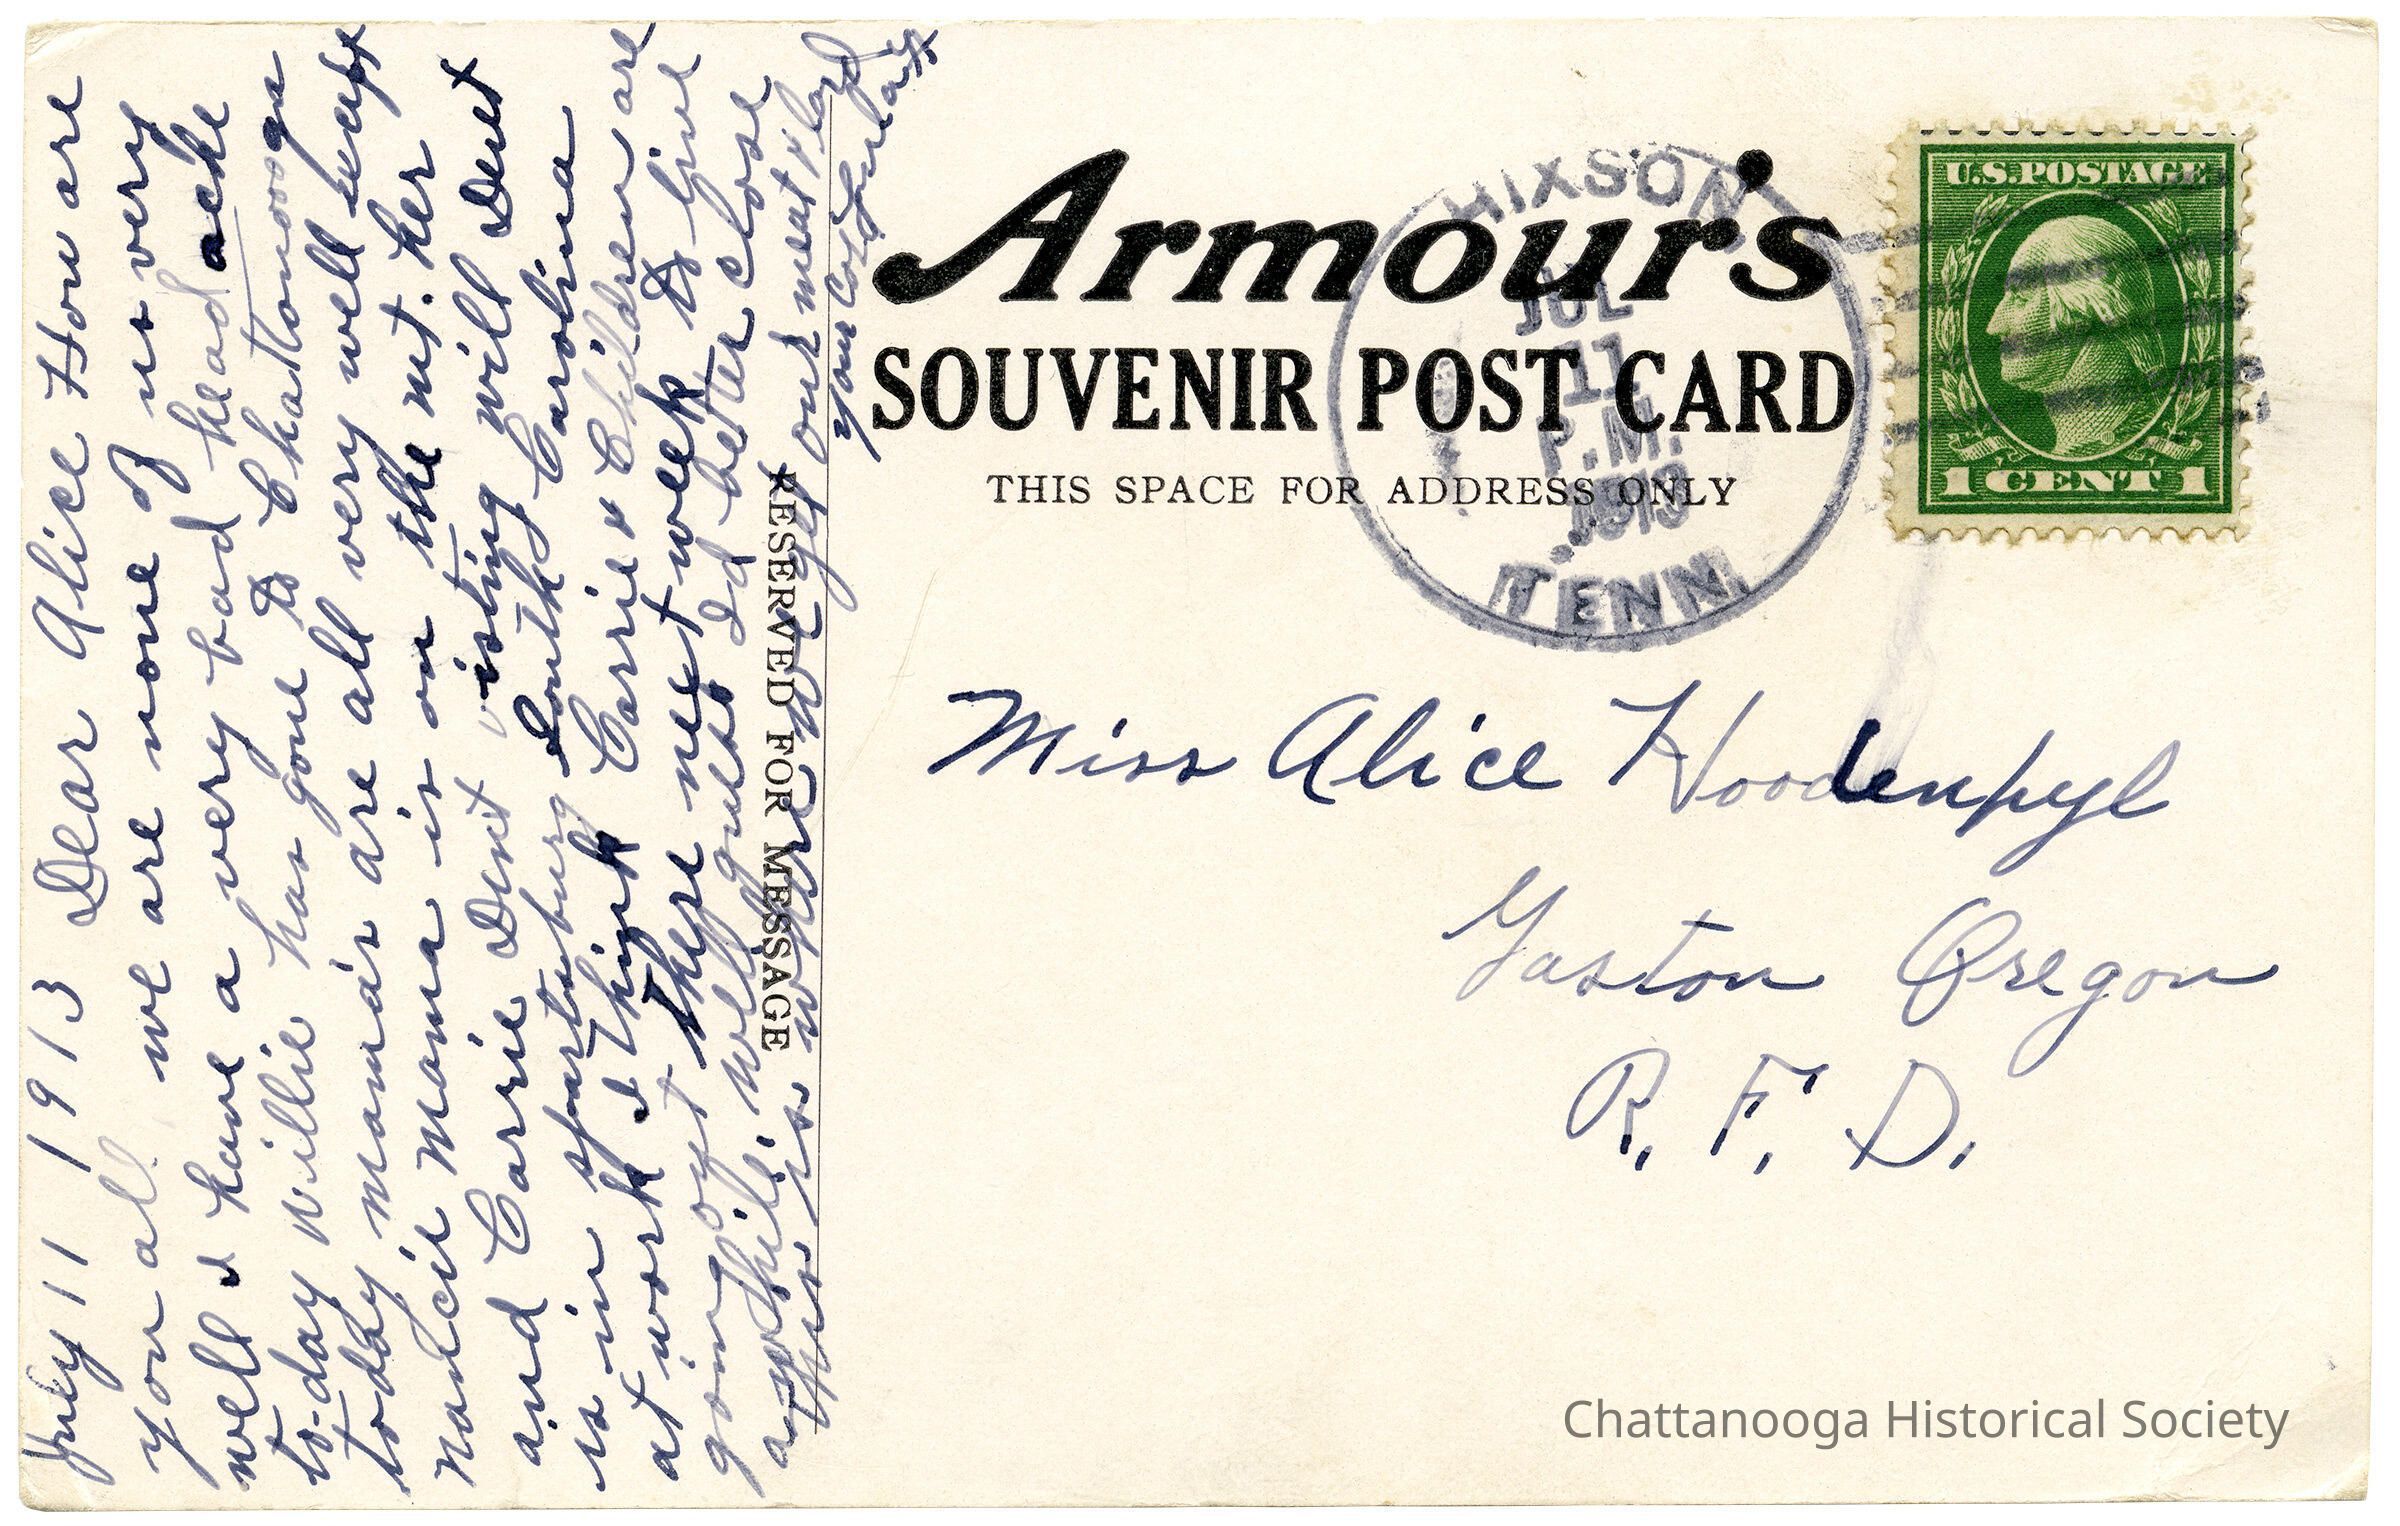 July 11 1913 Dear Alice How are
you all we are none of us very
well I have a very bad head ache
to-day Willie has gone to Chattanooga
today mama's are all very well except
mama is on the mt. her
and Carrie Dent visting will Dent
is in spartsburg South Carolina
at work I think Carrie & Children are
going out there next week to live
awhile. well guess Id better close
this is where we get our meat & lard
your Cold
Armour's
SOUVENIR POST CARD
THIS SPACE FOR ADDRESS ONLY
RESERVED FOR MESSAGE
HIXSON
JUL
11
P.M.
1913
TENN.
U.S. POSTAGE
1 CENT 1
Miss Alice Hoodenpyl
Gaston Oregon
R. F. D.
Chattanooga Historical Society